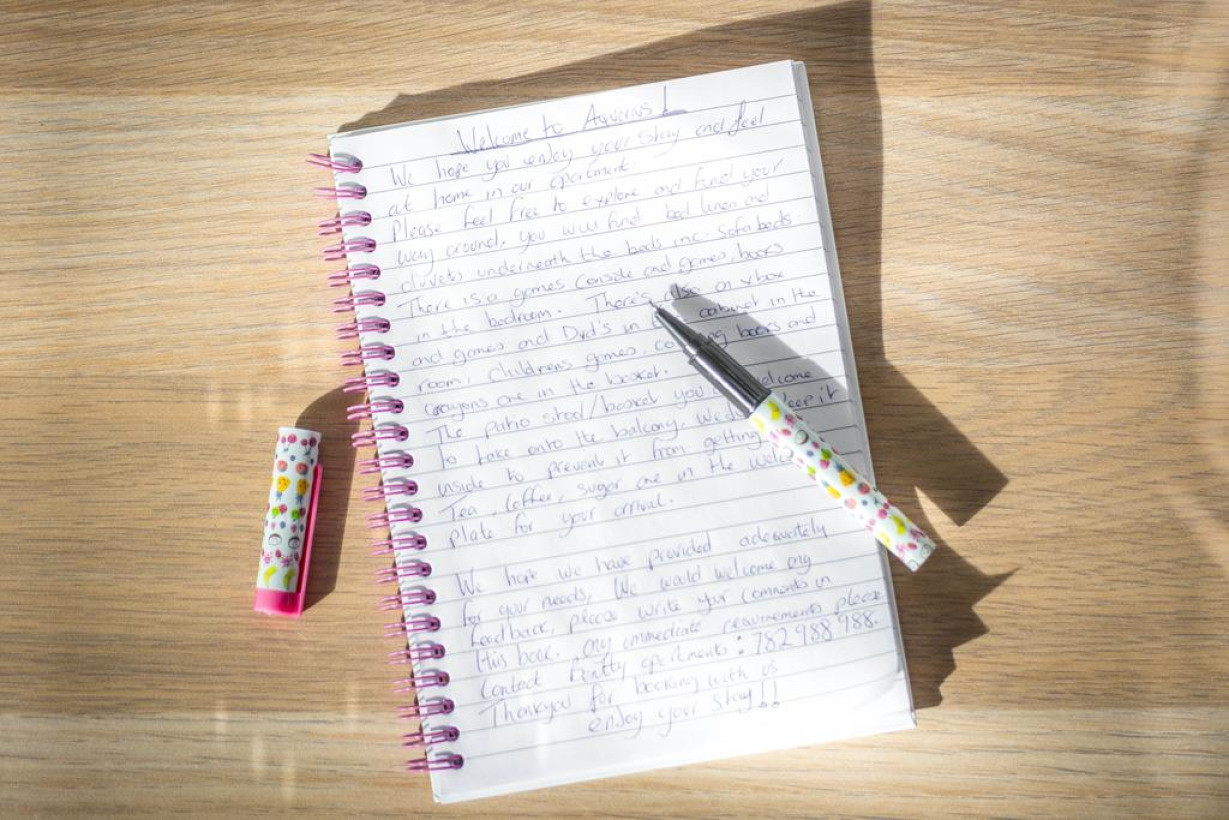 Welcome to Aquarius!
We hope you enjoy your stay and feel
at home in our apartment.
Please feel free to explore and fund your
way around, you will fund bed linen and
duvets underneath the beds inc. Sofa beds.
There is a games console and games, books
in the bedroom. There's also an xbox
and games and Dvd's in cabinet in the
room, childrens games, books and
crayons are in the basket.
The patio stool/basket you welcome
to take onto the balcony, We keep it
inside to prevent it from getting
Tea, Coffee, sugar are in the
plate for your arrival.
We hope we have provided adequately
for your needs, We would welcome any
feedback, please write your comments in
this book. any immediate requirements please
Contact apartments: 782 988 988.
Thankyou for booking with us
enjoy your stay!!